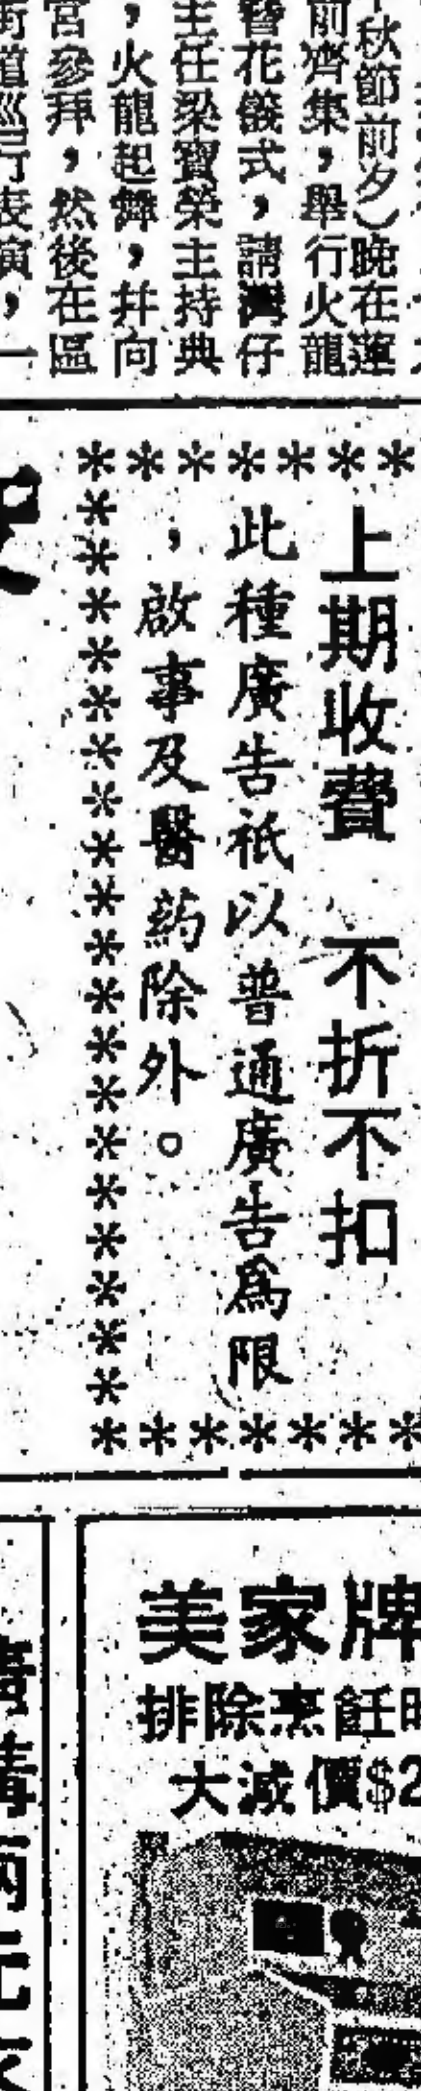 秋節前夕）晚在蓮
前齊集，舉行火龍
簪花儀式，請灣仔
主任梁寶榮主持典
，火龍起舞，幷向
宮參拜，然後在區
街道巡行表演，一
上期收費　不折不扣
此種廣告祇以普通廣告爲限
，啟事及醫药除外。
美家牌
排除烹飪時
大減價$2